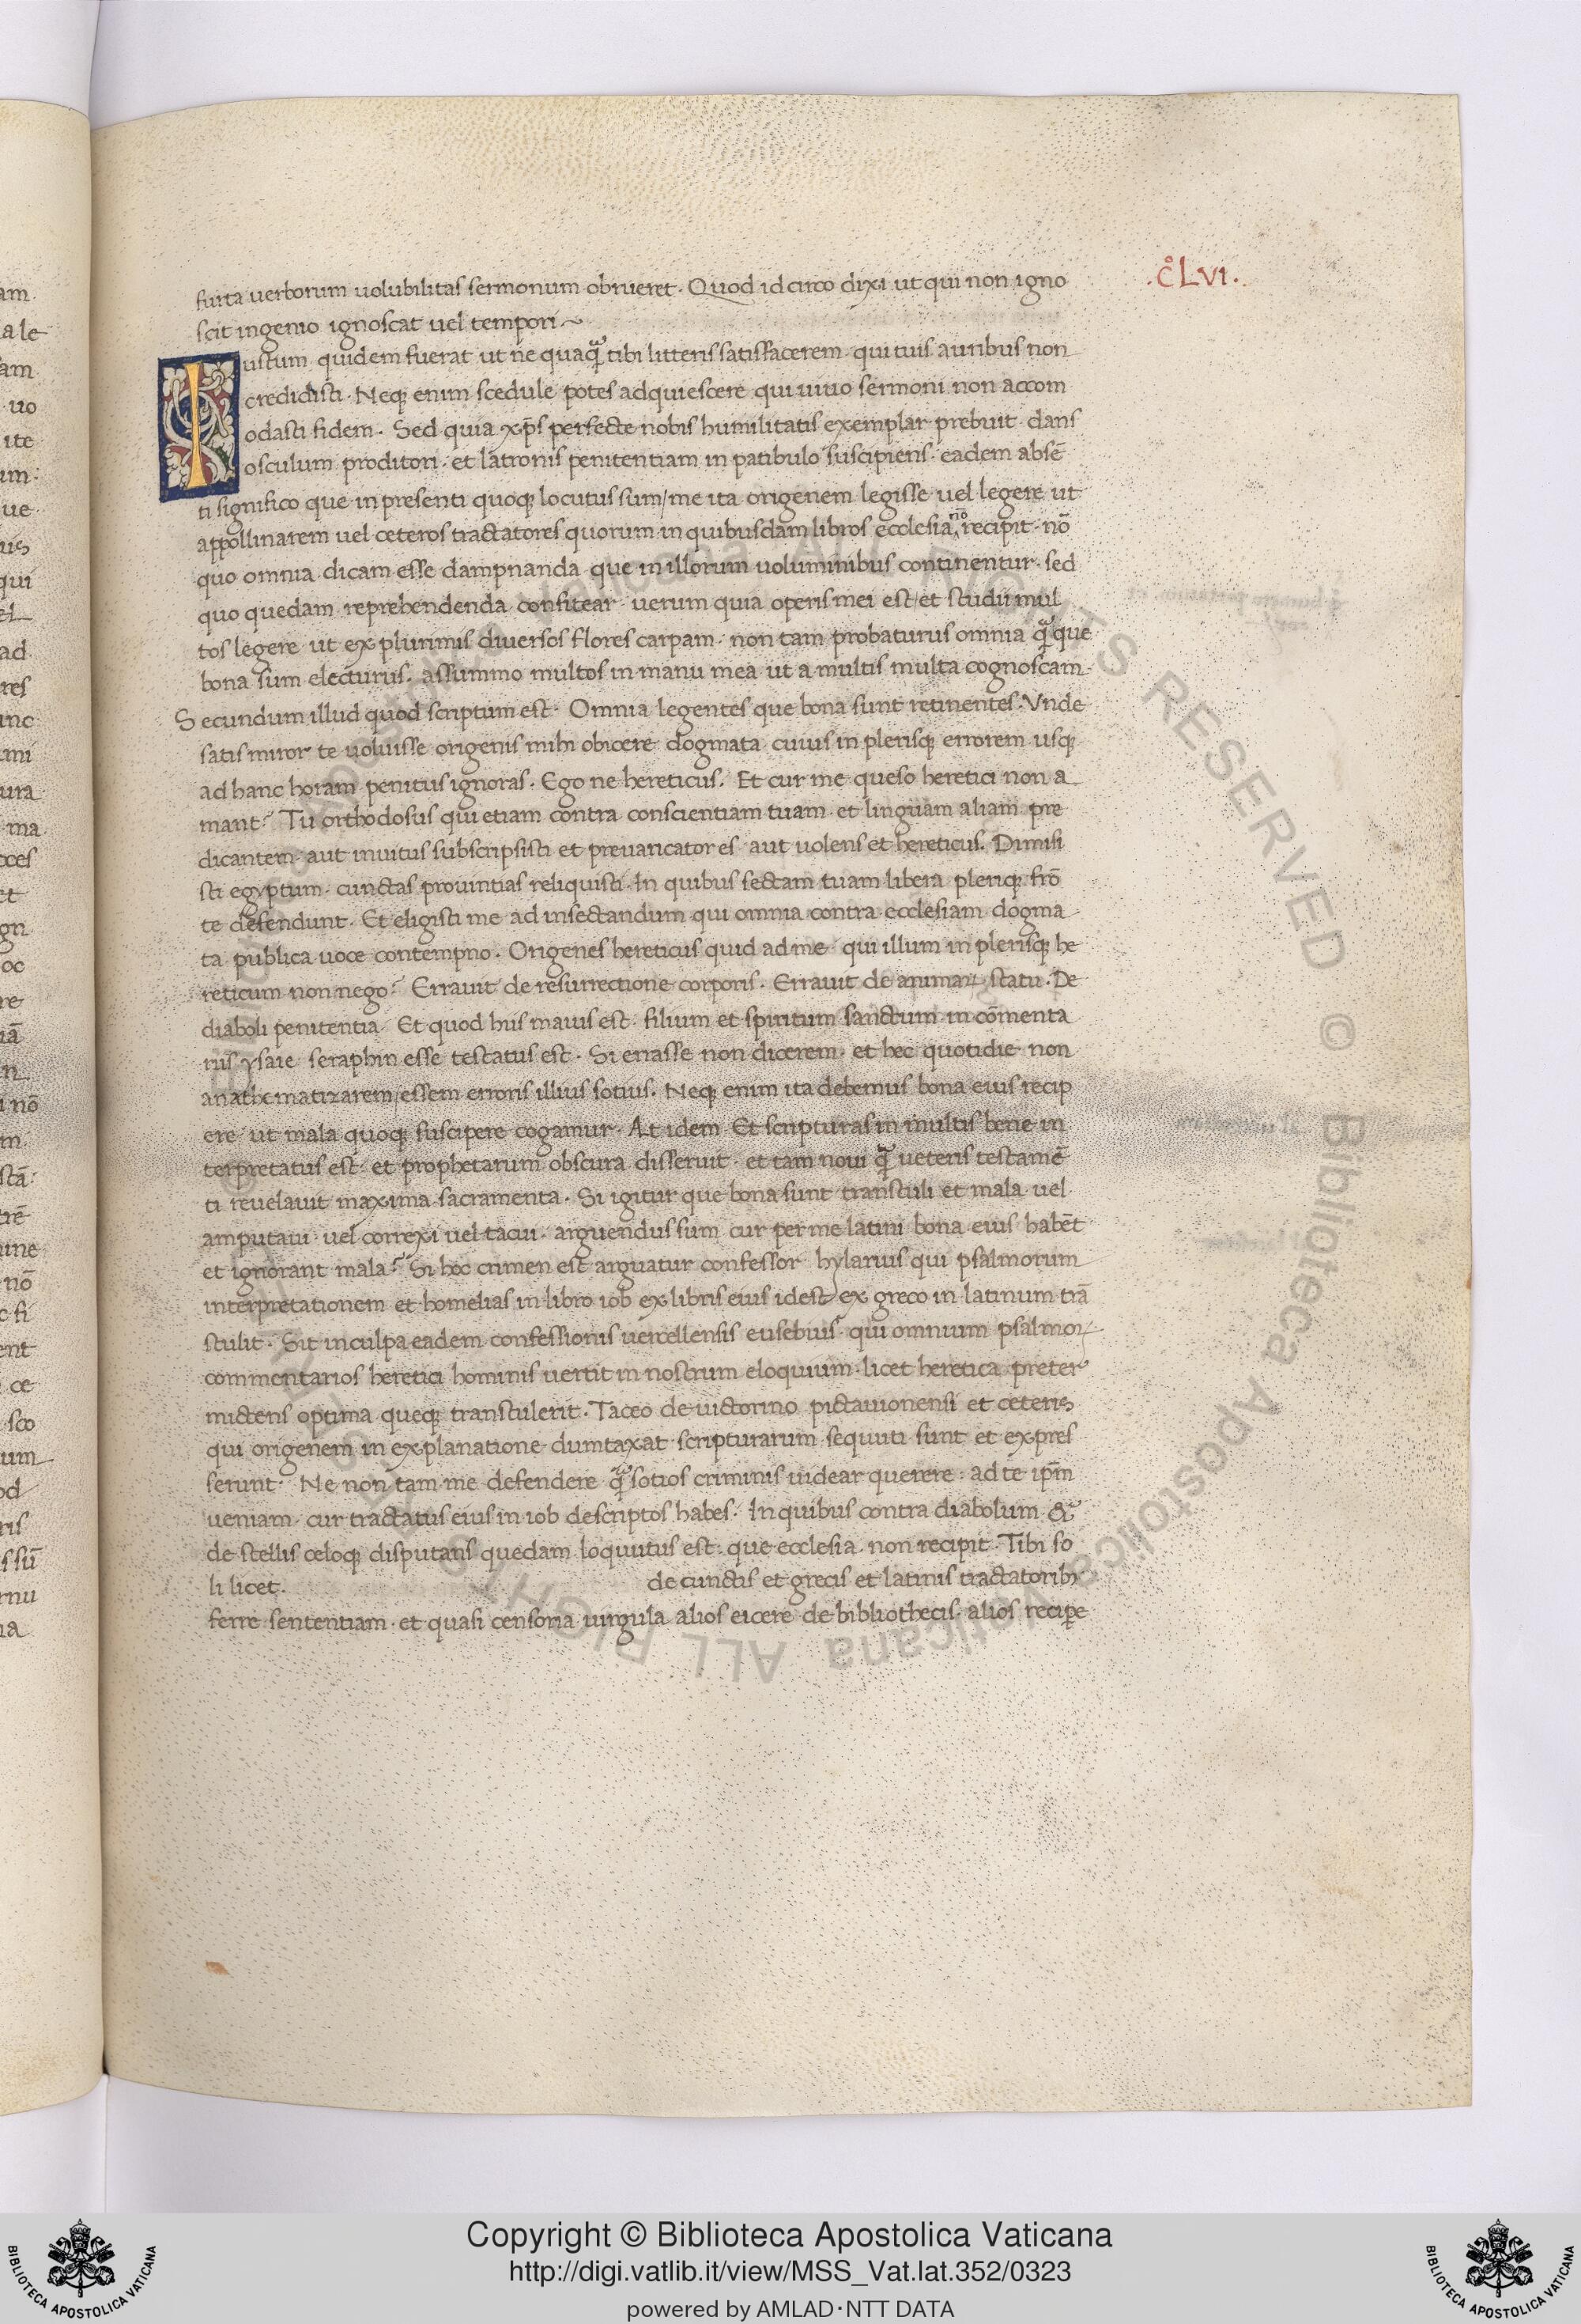 .c̊Lvi.
furta uerborum uolubilitas sermonum obrueret. Quod idcirco dixi ut qui non igno
scit ingenio ignoscat uel tempori~
Iustum quidem fuerat ut ne quaqᷓ tibi litteris satisfacerem qui tuis auribus non
credidisti. Neqꝫ enim scedule potes adquiescere qui uiuo sermoni non accom
odasti fidem. Sed quia xp̄s perfecte nobis humilitatis exemplar prebuit dans
osculum proditori. et latronis penitentiam in patibulo suscipiens. eadem absē
ti significo que in presenti quoqꝫ locutus sum/me ita origenem legisse uel legere ut
appollinarem uel ceteros tractatores quorum in quibusdam libros ecclesia nō recipit. nō
quo omnia dicam esse dampnanda que in illorum uoluminibus continentur. sed
quo quedam reprehendenda confitear uerum quia operis mei est/et studii mul
tos legere ut ex plurimis diuersos flores carpam. non tam probaturus omnia qᷓ que
bona sum electurus. assummo multos in manu mea ut a multis multa cognoscam
Secundum illud quod scriptum est. Omnia legentes que bona sunt retinentes. Vnde
satis miror te uoluisse origenis mihi obicere dogmata cuius in plerisqꝫ errorem usqꝫ
ad hanc horam penitus ignoras. Ego ne hereticus. Et cur me queso heretici non a
mant? Tu orthodosus qui etiam contra conscientiam tuam et linguam aliam pre
dicantem. aut inuitus subscripsisti et preuaricator es aut uolens et hereticus. Dimisi
sti egyptum. cunctas prouintias reliquisti. In quibus sectam tuam libera pleriqꝫ frō
te defendunt. Et eligisti me ad insectandum qui omnia contra ecclesiam dogma
ta publica uoce contempno. Origenes hereticus quid ad me qui illum in plerisqꝫ he
reticum non nego? Errauit de resurrectione corporis. Errauit de animaꝝ statu. De
diaboli penitentia Et quod hiis maius est. filium et spiritum sanctum in cōmenta
riis ysaie seraphin esse testatus est. Si errasse non dicerem. et hec quotidie non
anathematizarem/essem erroris illius sotius. Neqꝫ enim ita debemus bona eius recip
ere ut mala quoqꝫ suscipere cogamur. At idem Et scripturas in multis bene in
terpretatus est. et prophetarum obscura disseruit. et tam noui qᷓ ueteris testamē
ti reuelauit maxima sacramenta. Si igitur que bona sunt transtuli et mala uel
amputaui uel correxi uel tacui. arguendus sum cur per me latini bona eius habēt
et ignorant mala? Si hoc crimen est arguatur confessor hylarius qui psalmorum
interpretationem et homelias in libro iob ex libris eius idest ex greco in latinum trā
stulit. Sit in culpa eadem confessionis uercellensis eusebius qui omnium psalmoꝝ
commentarios heretici hominis uertit in nostrum eloquium. licet heretica preter
mictens optima queqꝫ transtulerit. Taceo de uictorino pictauionensi et ceteris
qui origenem in explanatione dumtaxat scripturarum sequuti sunt et expres
serunt. Ne non tam me defendere qᷓ sotios criminis uidear querere: ad te ip̄m
ueniam. cur tractatus eius in iob descriptos habes. In quibus contra diabolum &
de stellis celoqꝫ disputans quedam loquutus est. que ecclesia non recipit. Tibi so
li licet. de cunctis et grecis et latinis tractatoribꝫ
ferre sententiam. et quasi censoria uirgula alios eicere de bibliothecis. alios reciꝑe
Copyright © Biblioteca Apostolica Vaticana
http://digi.vatlib.it/view/MSS_Vat.lat.352/0323
powered by AMLAD·NTT DATA